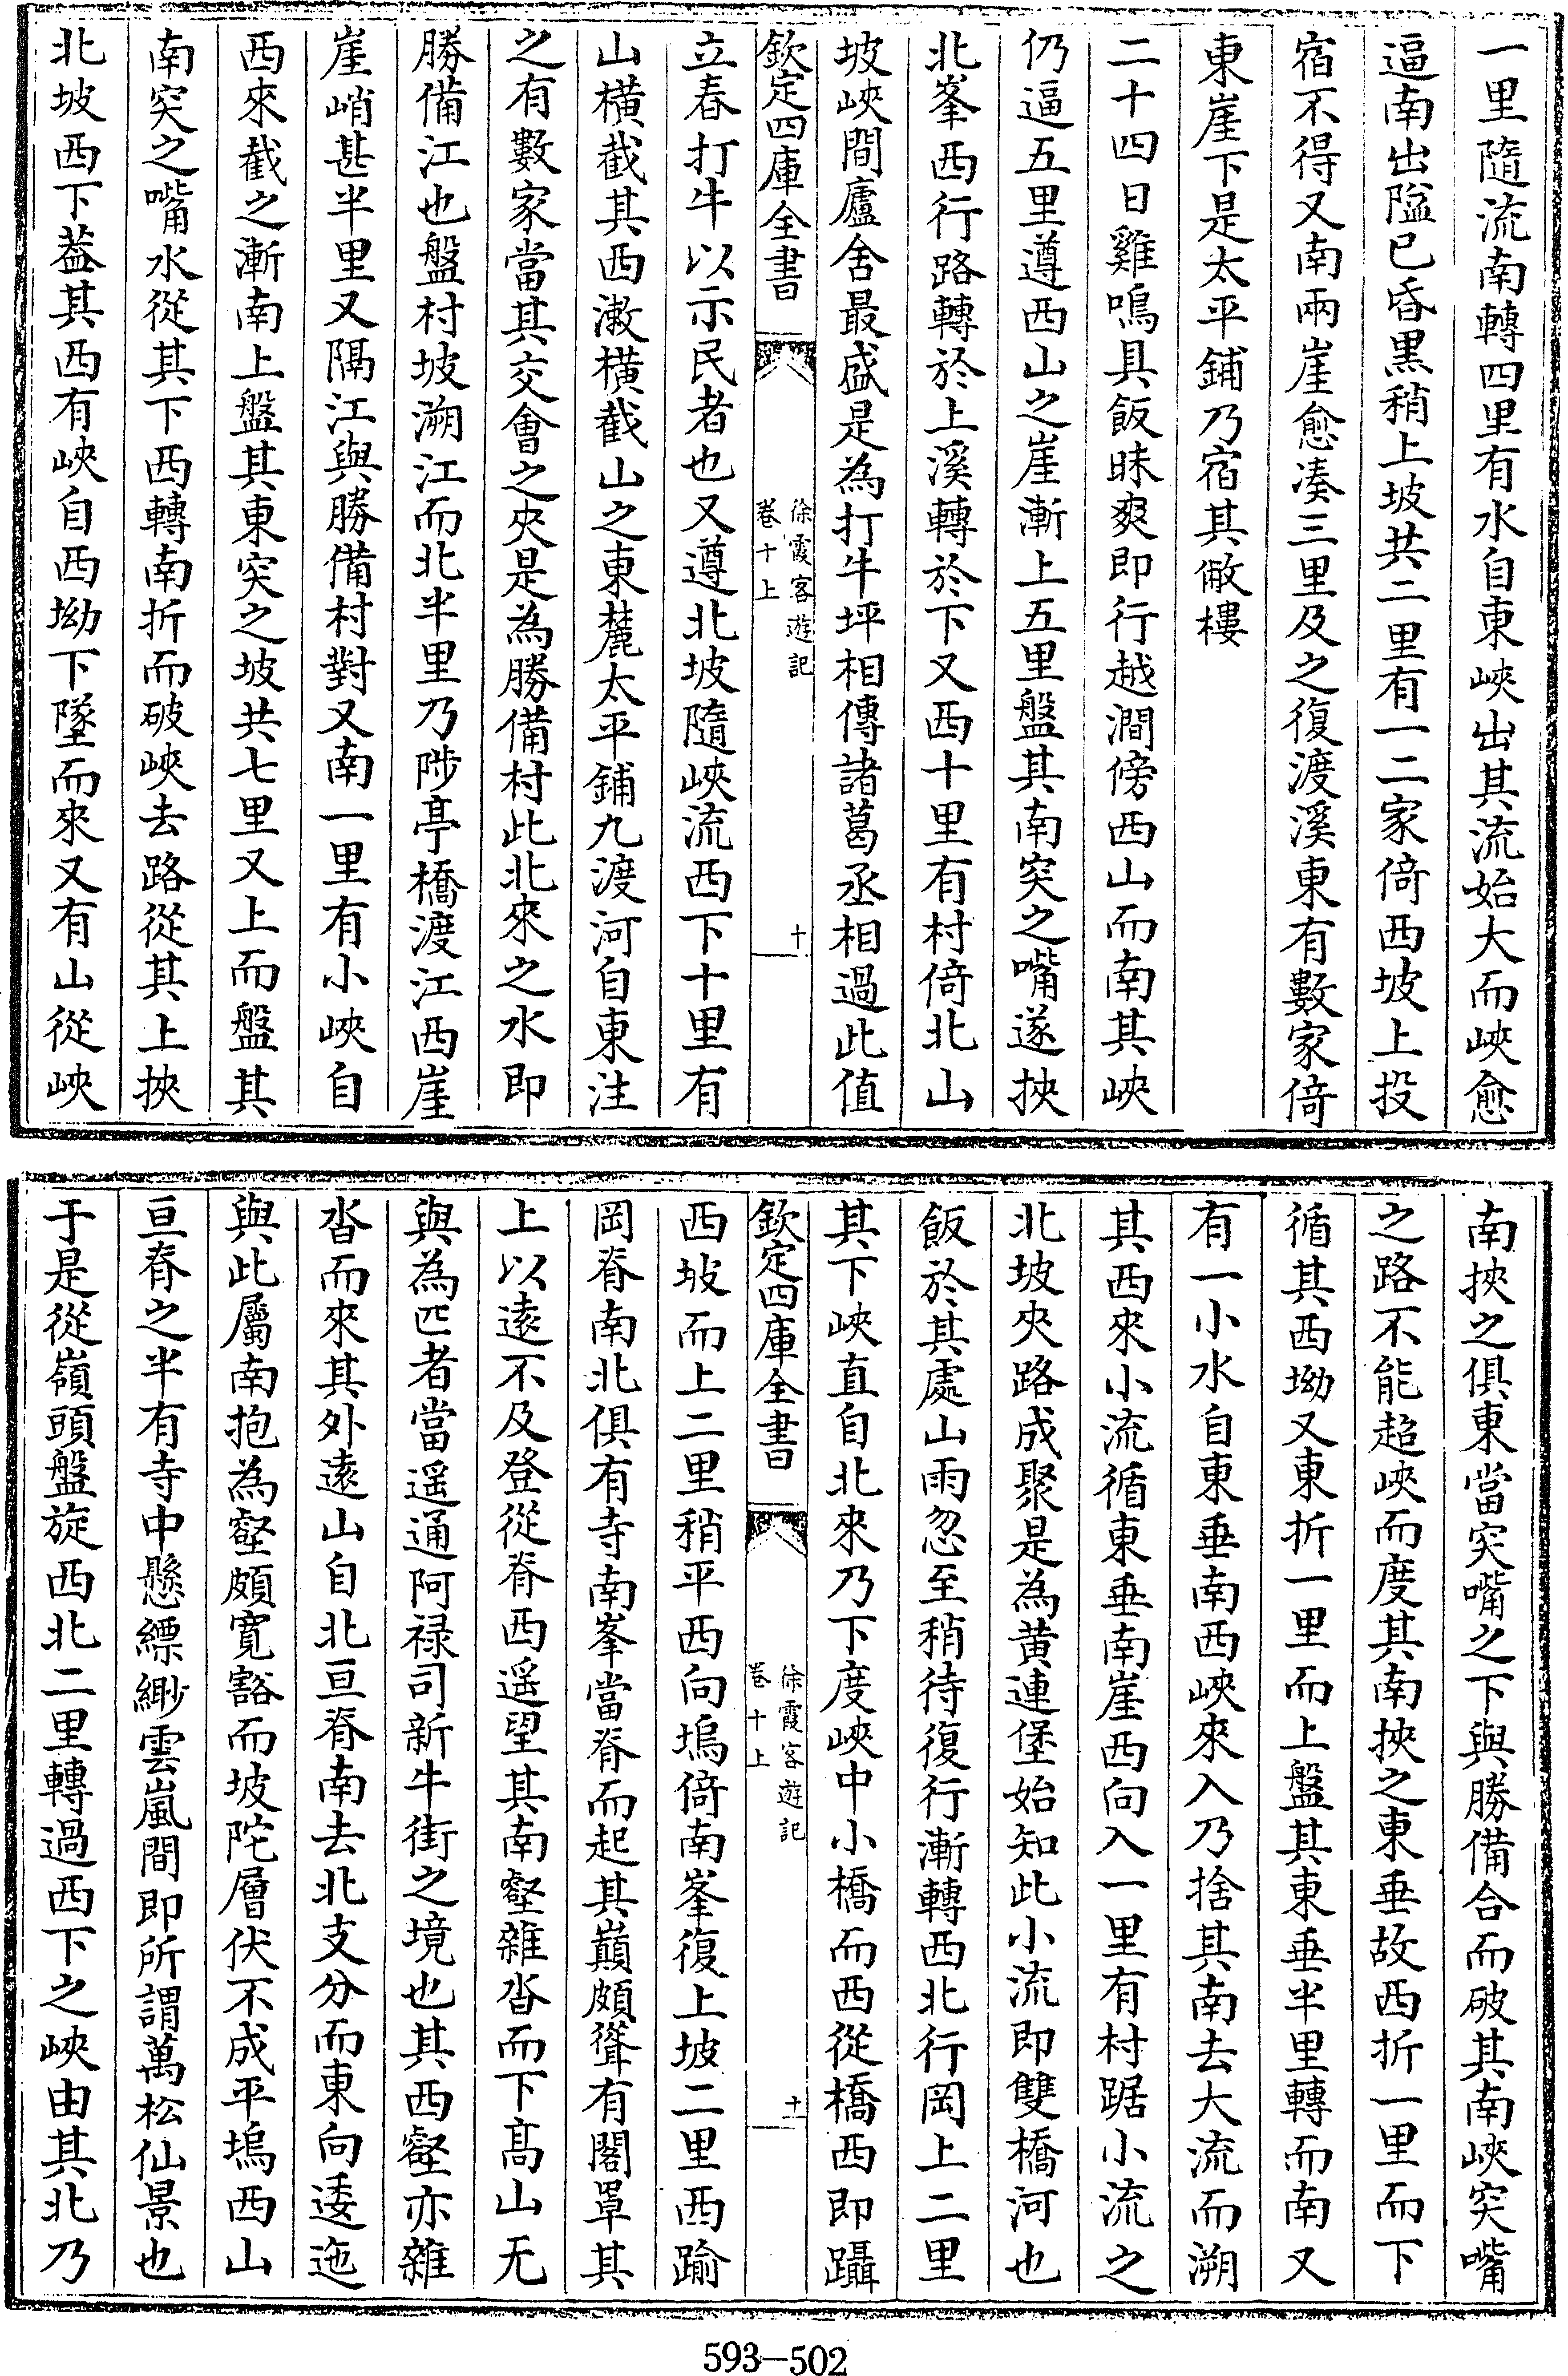 一里隨流南轉四里有水自東峽出其流始大而峽愈
逼南出隘已昏黑稍上坡共二里有一二家倚西坡上投
宿不得又南兩崖愈湊三里及之復渡溪東有數家倚
東崖下是太平鋪乃宿其敝樓
二十四日雞鳴具飯昧爽即行越澗傍西山而南其峽
仍逼五里遵西山之崖漸上五里盤其南突之嘴遂挾
北峯西行路轉於上溪轉於下又西十里有村倚北山
坡峽間廬舍最盛是為打牛坪相傳諸葛丞相過此值
欽定四庫全書
徐霞客遊記
卷十上
十
立春打牛以示民者也又遵北坡隨峽流西下十里有
山橫截其西漱橫截山之東麓太平鋪九渡河自東注
之有數家當其交會之夾是為勝備村此北來之水即
勝備江也盤村坡溯江而北半里乃陟亭橋渡江西崖
崖峭甚半里又隔江與勝備村對又南一里有小峽自
西來截之漸南上盤其東突之坡共七里又上而盤其
南突之嘴水從其下西轉南折而破峽去路從其上挾
北坡西下葢其西有峽自西坳下墜而來又有山從峽
南挾之俱東當突嘴之下與勝備合而破其南峽突嘴
之路不能超峽而度其南挾之東垂故西折一里而下
循其西坳又東折一里而上盤其東垂半里轉而南又
有一小水自東垂南西峽來入乃捨其南去大流而溯
其西來小流循東垂南崖西向入一里有村踞小流之
北坡夾路成聚是為黃連堡始知此小流即雙橋河也
飯於其處山雨忽至稍待復行漸轉西北行岡上二里
其下峽直自北來乃下度峽中小橋而西從橋西即躡
欽定四庫全書
徐霞客遊記
卷十上
十一
西坡而上二里稍平西向塢倚南峯復上坡二里西踰
岡脊南北俱有寺南峯當脊而起其巔頗聳有閣罩其
上以遠不及登從脊西遥望其南壑雜沓而下高山无
與為匹者當遥通阿禄司新牛街之境也其西壑亦雜
沓而來其外遠山自北亘脊南去北支分而東向逶迤
與此屬南抱為壑頗寬豁而坡陀層伏不成平塢西山
亘脊之半有寺中懸縹緲雲嵐間即所謂萬松仙景也
于是從嶺頭盤旋西北二里轉過西下之峽由其北乃
593-502